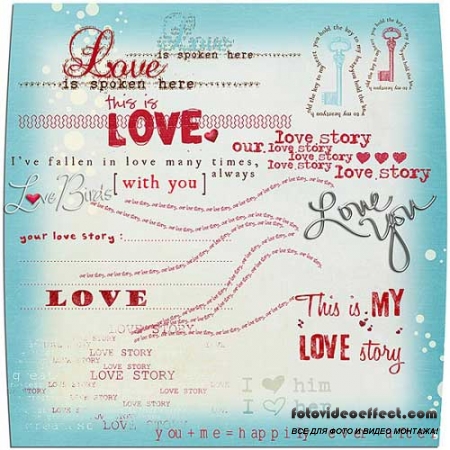 Love
is spoken here
Love
is spoken here
you hold the key to my heart
this is
LOVE
our love story
love story
love story
love story
I've fallen in love many times,
always
[with you]
Love Birds
Love You
your love story :
our love story
LOVE
This is MY
LOVE story
LOVE STORY
LOVE STORY
LOVE STORY
LOVE STORY
LOVE STORY
LOVE STORY
I ♥ him
I ♥ her
fotovideoeffect.com
ВСЕ ДЛЯ ФОТО И ВИДЕО МОНТАЖА!
you+me=happily ever after